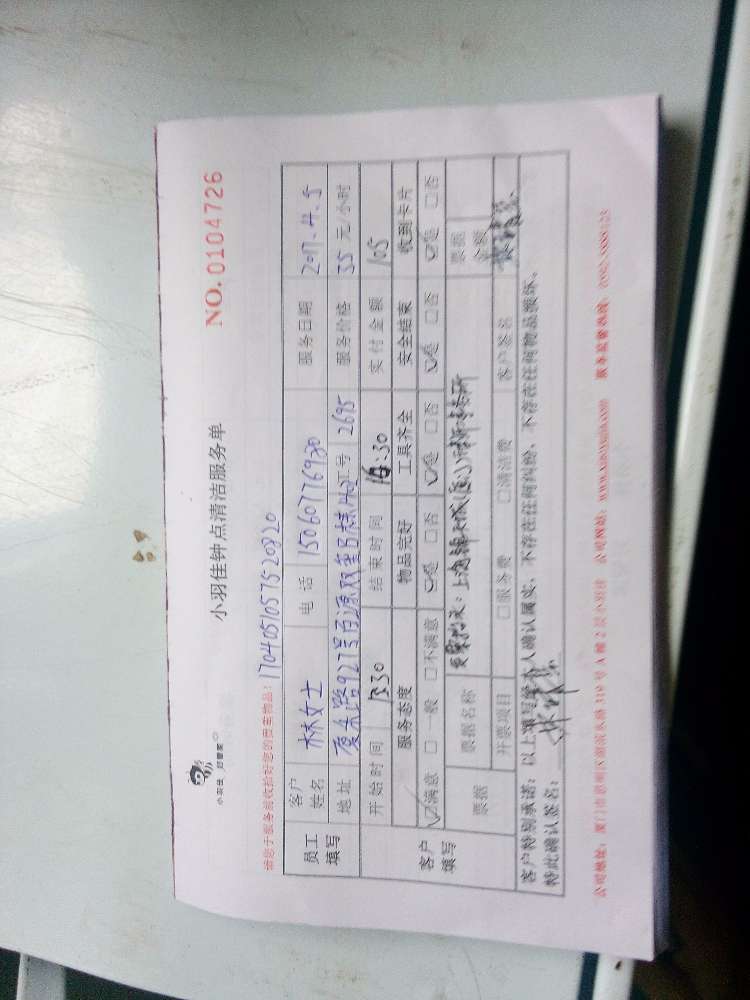 小羽佳 好管家
小羽佳钟点清洁服务单
NO. 0104726
请您于服务前收拾好您的贵重物品!
1704051057520320
员工填写
客户姓名 林女士 电话 15060776930 服务日期 2017.4.5
地址 厦禾路927号百源双玺B栋 工号 2695 服务价格 35 元/小时
开始时间 13:30 结束时间 16:30 实付金额 105
客户填写
服务态度 物品完好 工具齐全 安全结束 收到卡片
☑满意 □一般 □不满意 ☑是 □否 ☑是 □否 ☑是 □否 ☑是 □否
票据 票据名称 发票抬头:上海锦天城(厦门)律师事务所 票据金额
开票项目 □服务费 □清洁费 客户签名
客户特别承诺:以上填写经本人确认属实,不存在任何纠纷,不存在任何物品损坏,
特此确认签名:
公司地址:厦门市思明区 319号A幢2层小羽佳 公司网站:www.xiaoyujia.com 服务监督热线: